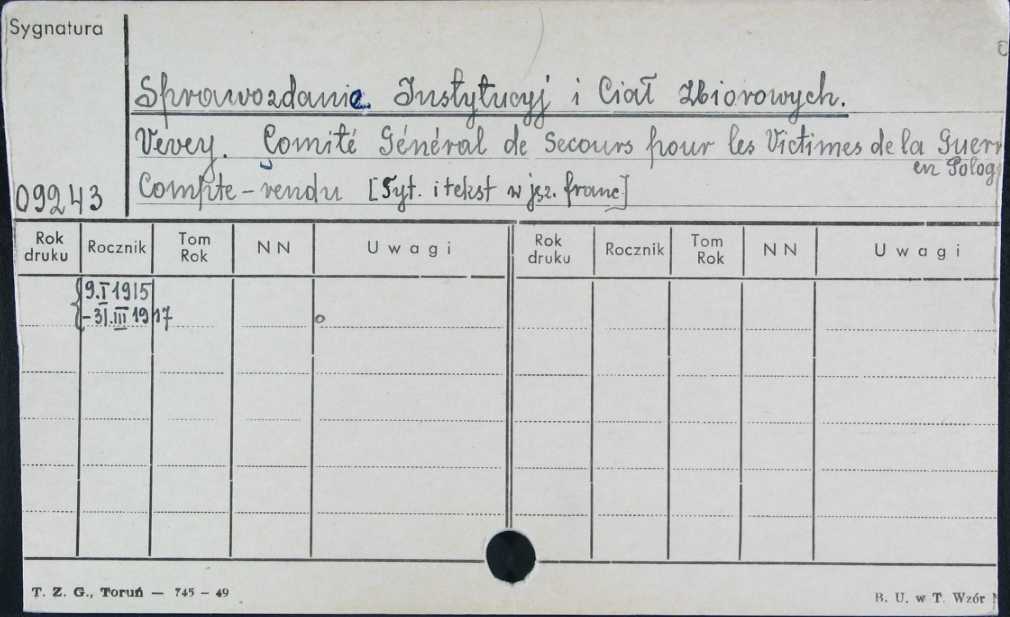 Sygnatura
Sprawozdanie Instytucyj i Ciał Zbiorowych.
Vevey. Comité Général de Secours pour les Victimes de la Guerr
en Polog
09243 Compte-rendu [Tyt. i tekst w jęz. franc]
Rok druku Rocznik Tom Rok NN Uwagi Rok druku Rocznik Tom Rok NN Uwagi
9.I 1915
-31.III 1917
T. Z. G., Toruń — 745 - 49
B. U. w T. Wzór